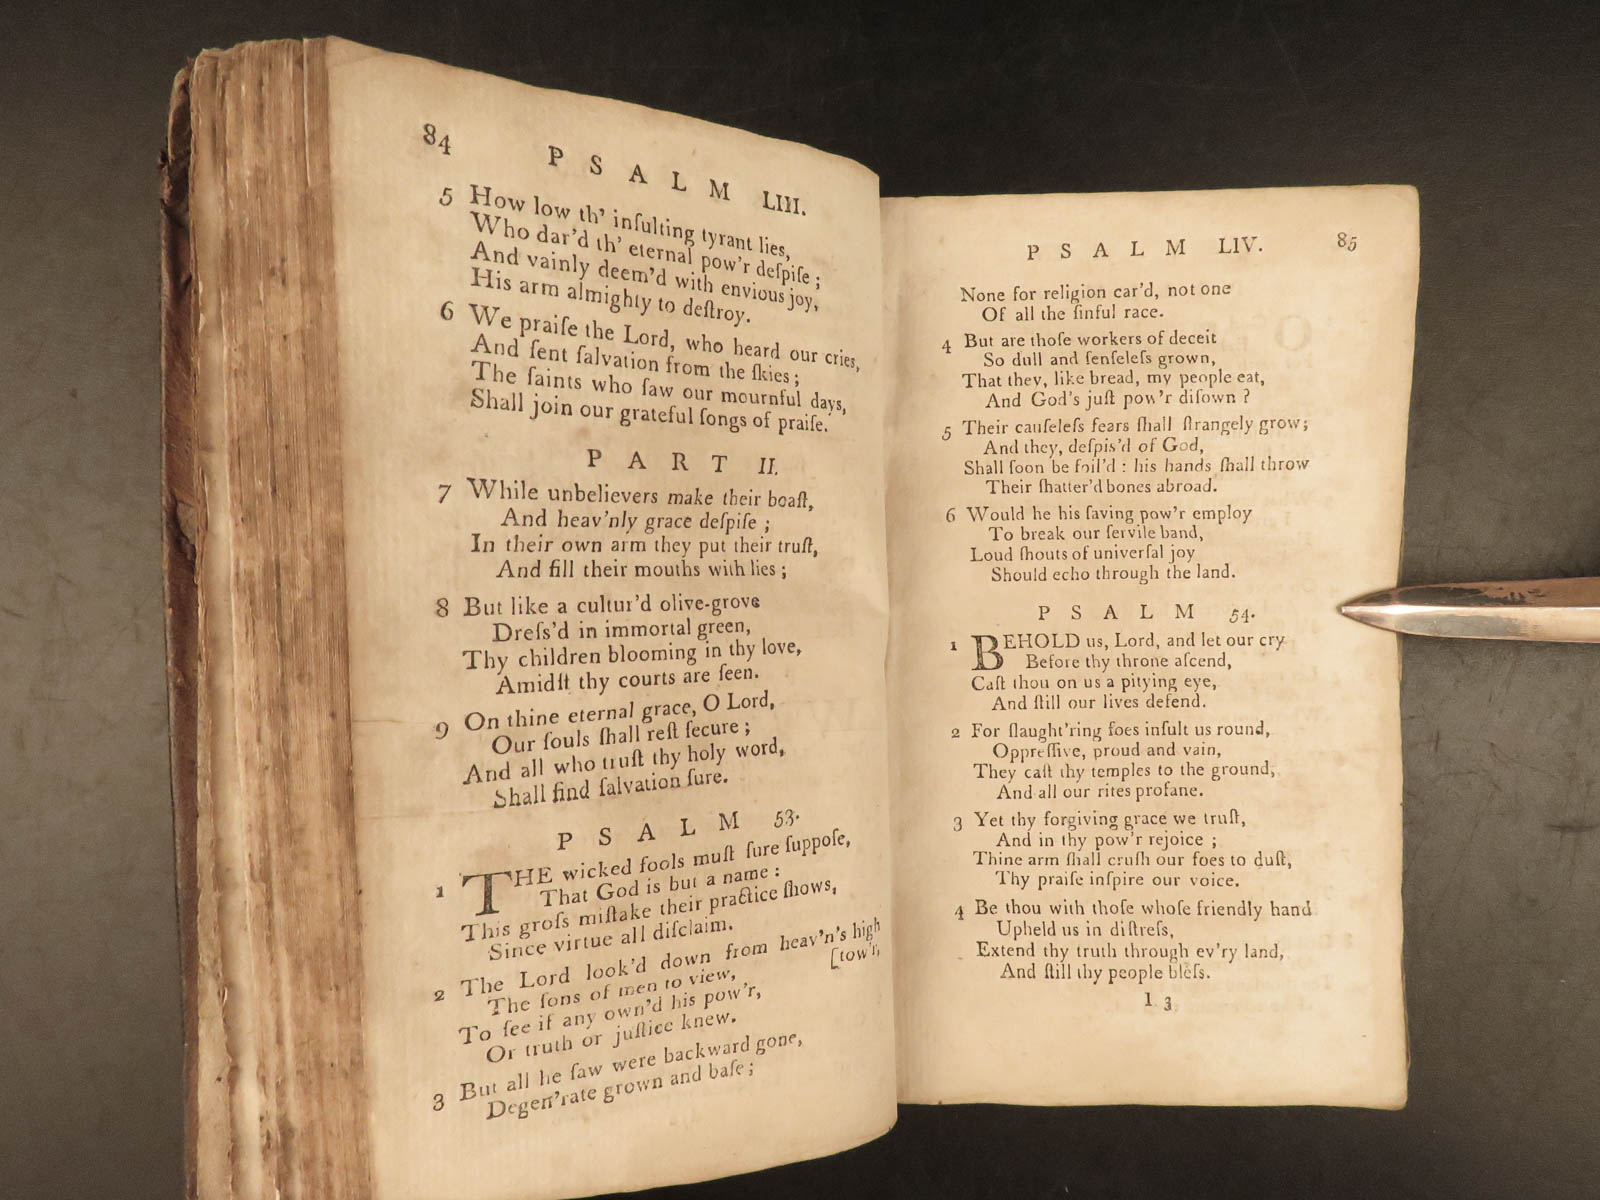 84
PSALM LIII.
5 How low th' inſulting tyrant lies,
Who dar'd th' eternal pow'r deſpiſe ;
And vainly deem'd with envious joy,
His arm almighty to deſtroy.
6 We praiſe the Lord, who heard our cries,
And ſent ſalvation from the ſkies ;
The ſaints who ſaw our mournful days,
Shall join our grateful ſongs of praiſe.
PART II.
7 While unbelievers make their boaſt,
And heav'nly grace deſpiſe ;
In their own arm they put their truſt,
And fill their mouths with lies ;
8 But like a cultur'd olive-grove
Dreſs'd in immortal green,
Thy children blooming in thy love,
Amidſt thy courts are ſeen.
9 On thine eternal grace, O Lord,
Our ſouls ſhall reſt ſecure ;
And all who truſt thy holy word,
Shall find ſalvation ſure.
PSALM 53.
1 THE wicked fools muſt ſure ſuppoſe,
That God is but a name :
This groſs miſtake their practice ſhows,
Since virtue all diſclaim.
2 The Lord look'd down from heav'n's high
[tow'r,
The ſons of men to view,
To ſee if any own'd his pow'r,
Or truth or juſtice knew.
3 But all he ſaw were backward gone,
Degen'rate grown and baſe ;
PSALM LIV.
85
None for religion car'd, not one
Of all the ſinful race.
4 But are thoſe workers of deceit
So dull and ſenſeleſs grown,
That they, like bread, my people eat,
And God's juſt pow'r diſown ?
5 Their cauſeleſs fears ſhall ſtrangely grow;
And they, deſpis'd of God,
Shall ſoon be foil'd : his hands ſhall throw
Their ſhatter'd bones abroad.
6 Would he his ſaving pow'r employ
To break our ſervile band,
Loud ſhouts of univerſal joy
Should echo through the land.
PSALM 54.
1 BEHOLD us, Lord, and let our cry
Before thy throne aſcend,
Caſt thou on us a pitying eye,
And ſtill our lives defend.
2 For ſlaught'ring foes inſult us round,
Oppreſſive, proud and vain,
They caſt thy temples to the ground,
And all our rites profane.
3 Yet thy forgiving grace we truſt,
And in thy pow'r rejoice ;
Thine arm ſhall cruſh our foes to duſt,
Thy praiſe inſpire our voice.
4 Be thou with thoſe whoſe friendly hand
Upheld us in diſtreſs,
Extend thy truth through ev'ry land,
And ſtill thy people bleſs.
I 3